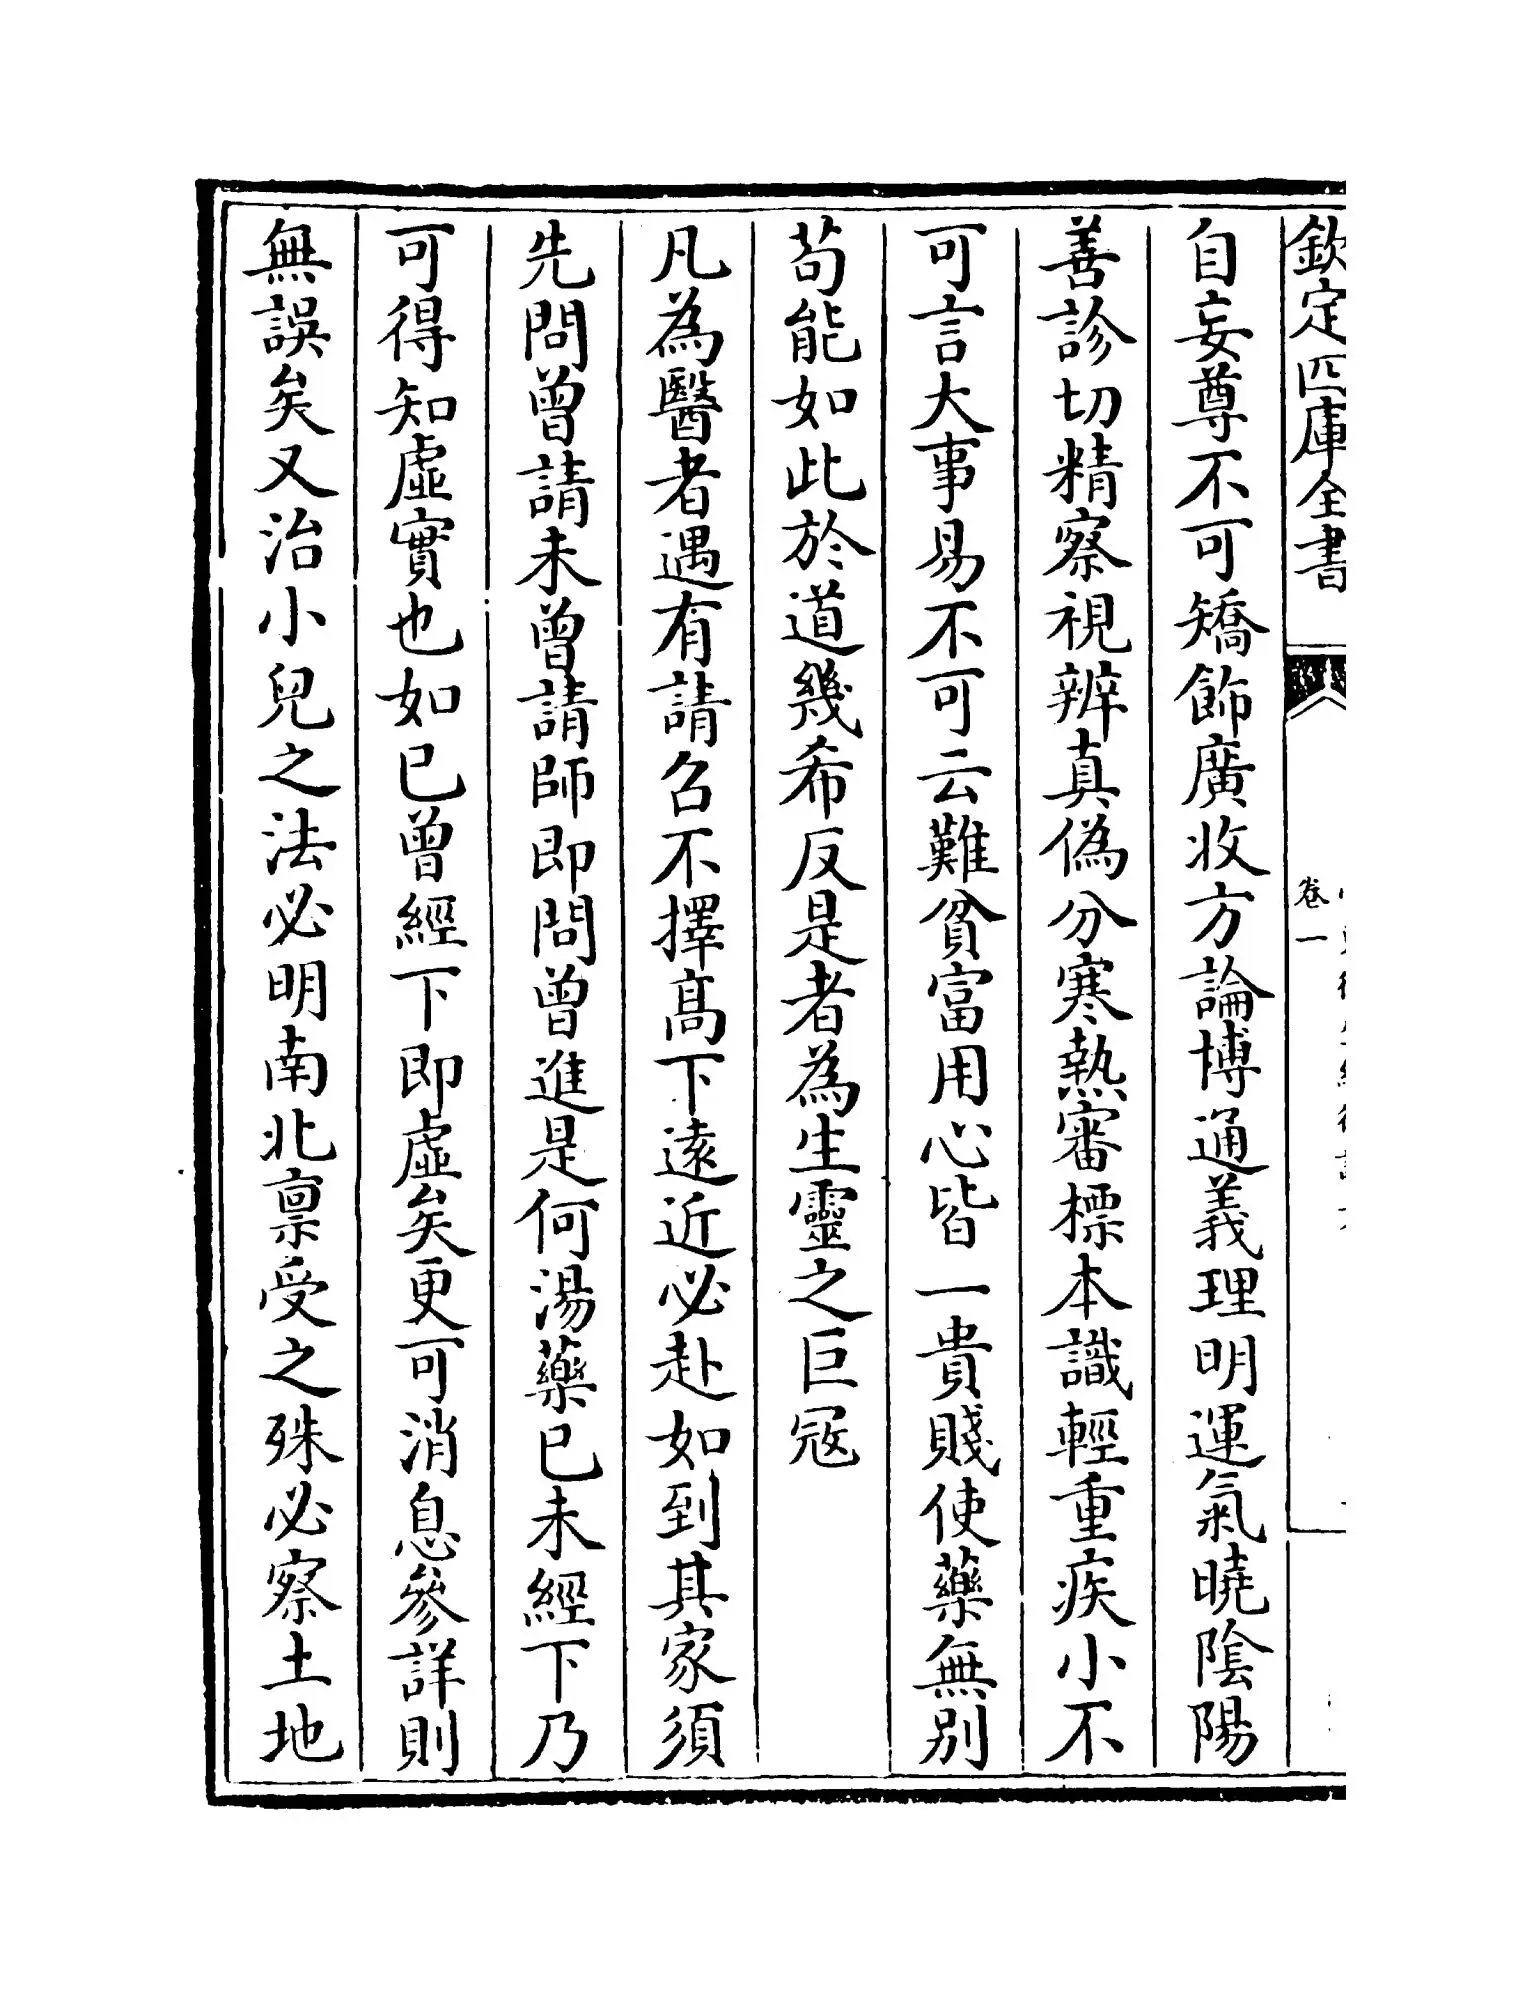 欽定四庫全書
卷一
自妄尊不可矯飾廣收方論博通義理明運氣曉陰陽
善診切精察視辨真偽分寒熱審標本識輕重疾小不
可言大事易不可云難貧富用心皆一貴賤使藥無別
苟能如此於道幾希反是者為生靈之巨寇
凡為醫者遇有請召不擇髙下逺近必赴如到其家須
先問曾請未曾請師即問曾進是何湯藥已未經下乃
可得知虛實也如已曾經下即虛矣更可消息參詳則
無誤矣又治小兒之法必明南北禀受之殊必察土地